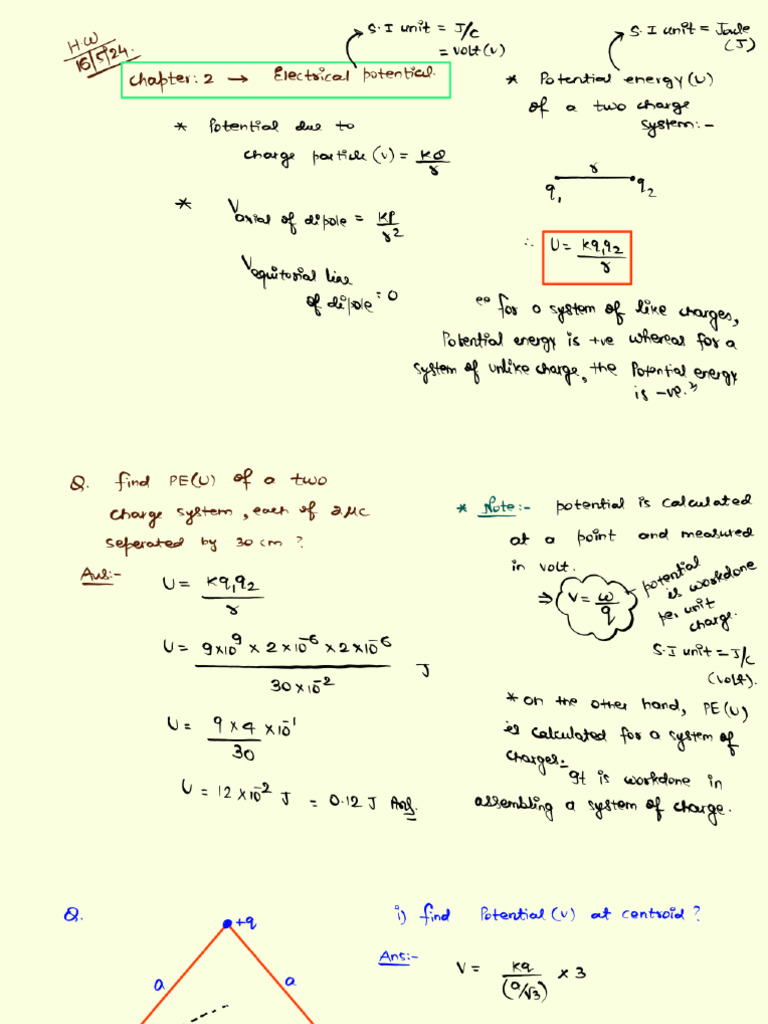 H.W
16/5/24.
S.I unit = J/C
= volt (v)
Chapter: 2 → Electrical potential.
* Potential due to
charge particle (v) = KQ/r
* Vaxial of dipole = KP/r²
Vequitorial line of dipole = 0
S.I unit = Joule
(J)
* Potential energy (U)
of a two charge
system:-
r
q₁ q₂
∴ U = Kq₁q₂/r
"for a system of like charges,
Potential energy is +ve whereas for a
system of unlike charge, the Potential energy
is -ve."
Q. find PE(U) of a two
charge system, each of 2μc
seperated by 30 cm ?
Ans:-
U = Kq₁q₂/r
U = 9×10⁹ × 2×10⁻⁶ × 2×10⁻⁶ / 30×10⁻² J
U = 9 × 4 × 10⁻¹ / 30
U = 12 × 10⁻² J = 0.12 J Ans.
* Note:- potential is calculated
at a point and measured
in volt.
⇒ V = w/q
potential
is workdone
per unit
charge.
S.I unit = J/c
(volt).
* on the other hand, PE(U)
is calculated for a system of
charges.
It is workdone in
assembling a system of charge.
Q.
+q
a a
i) find Potential (v) at centroid ?
Ans:-
V = Kq/(a/√3) × 3